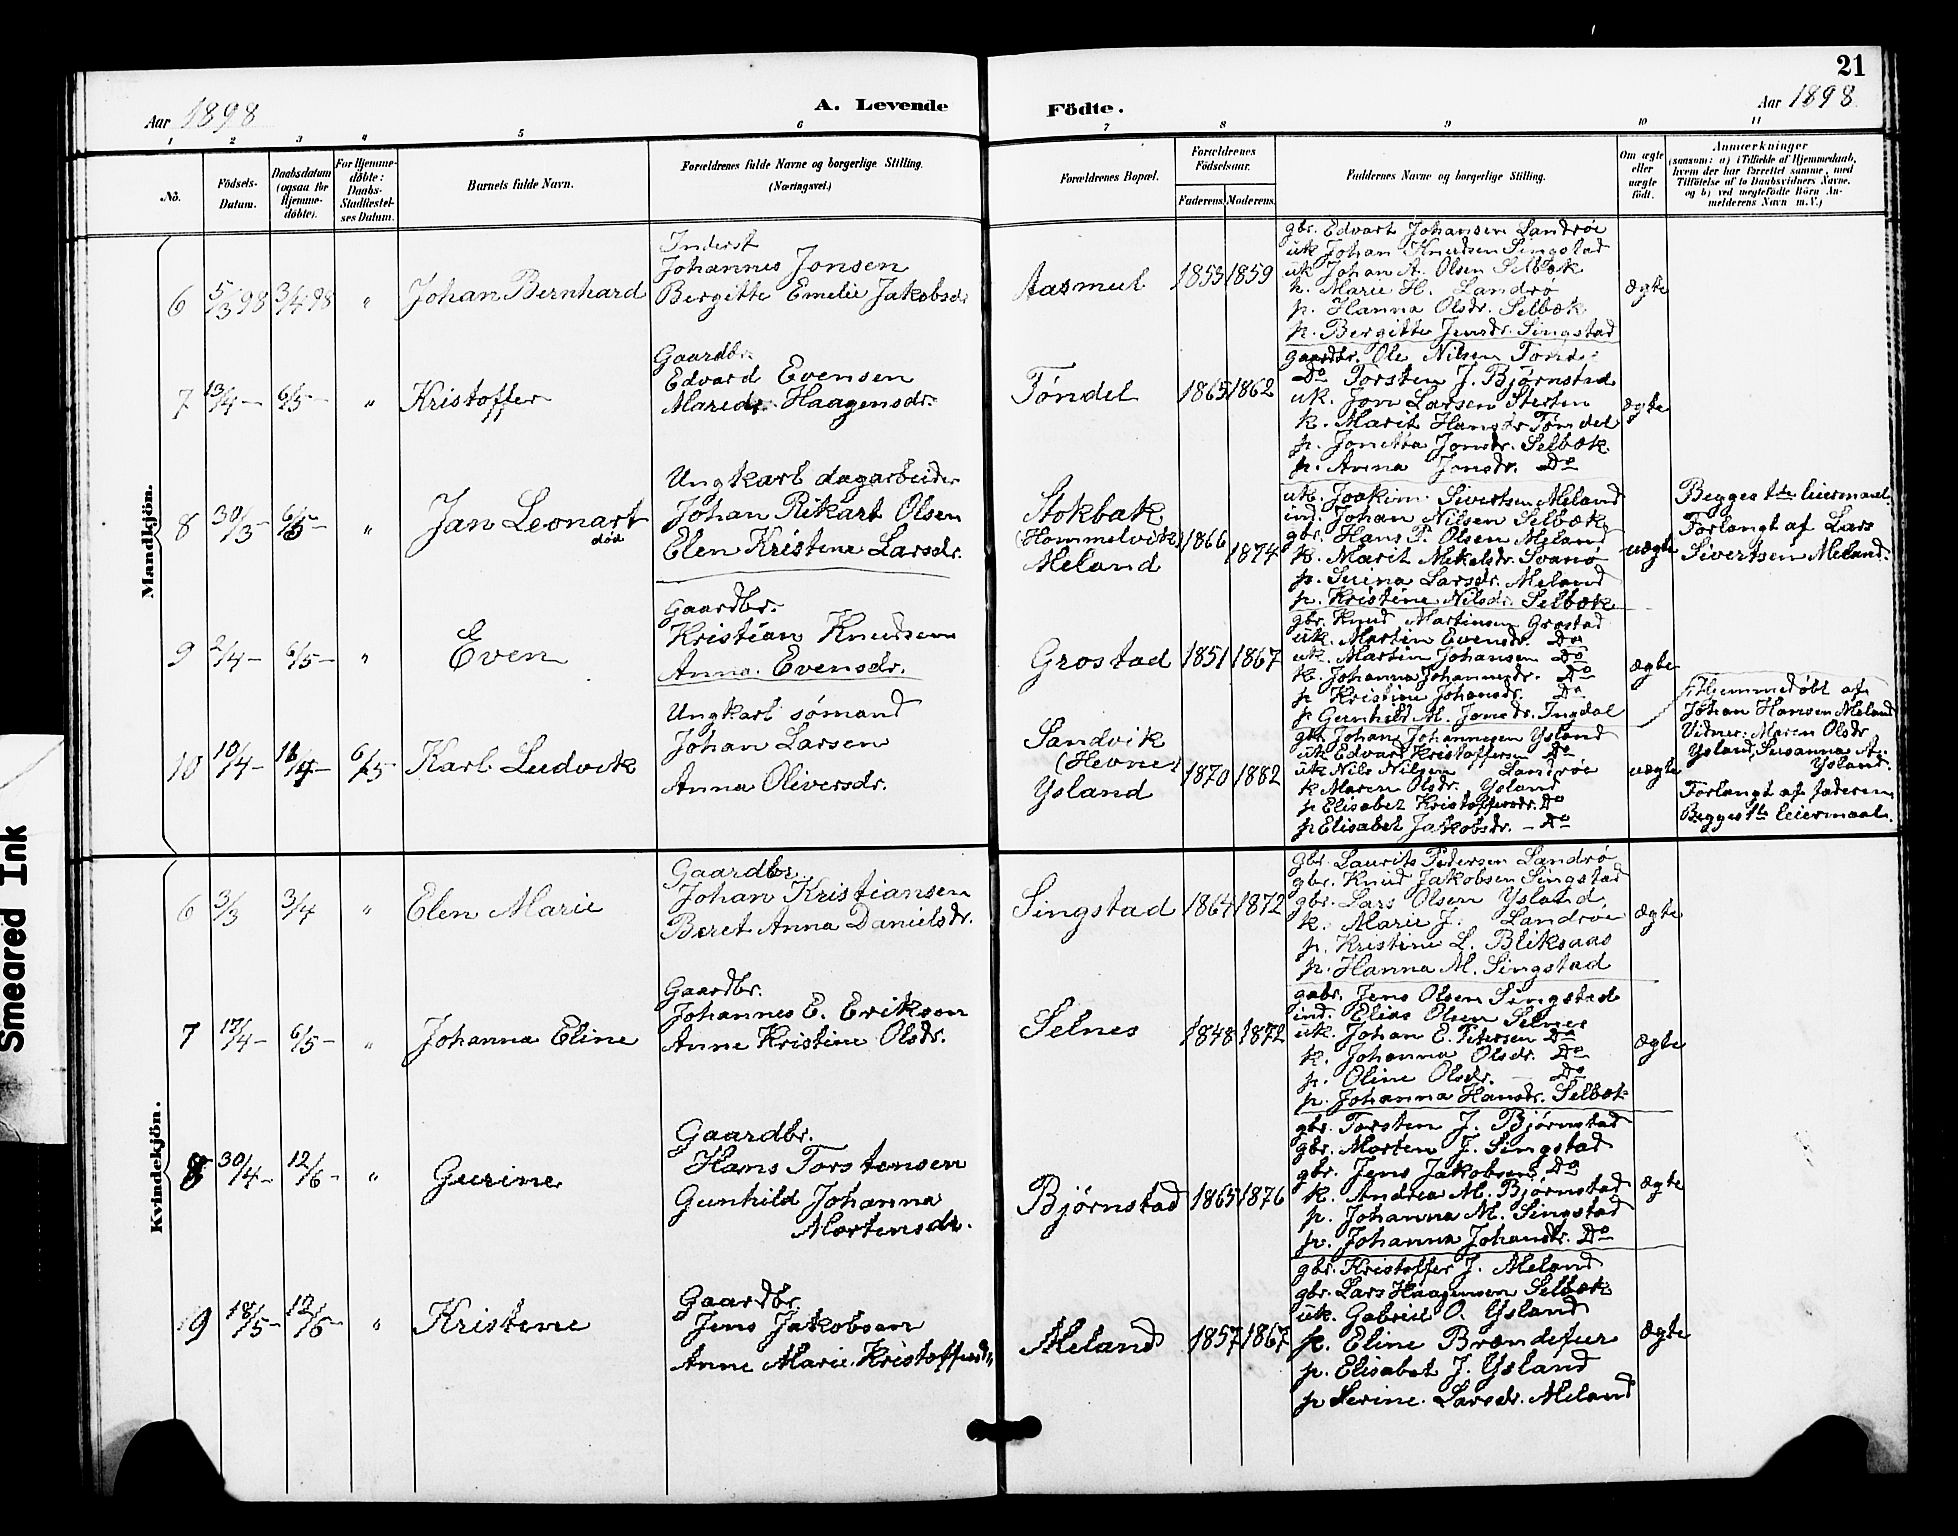 21
Aar 1898
A. Levende
Födte.
Aar 1898
1 2 3 4 5 6 7 8 9 10 11
No.
Födsels-
Datum.
Daabsdatum
(ogsaa for
Hjemme-
döbte).
For Hjemme-
döbte:
Daabs-
Stadfæstel-
ses Datum.
Barnets fulde Navn.
Forældrenes fulde Navne og borgerlige Stilling.
(Næringsvei.)
Forældrenes Bopæl.
Forældrenes
Födselsaar.
Faderens. Moderens.
Faddernes Navne og borgerlige Stilling.
Om ægte
eller
uægte
födt.
Anmærkninger
(saasom: a) i Tilfælde af Hjemmedaab,
hvem der har forrettet samme, med
Tilföielse af to Daabsvidners Navne,
og b) ved uegtefödte Börn An-
melderens Navn m. V.)
Mandkjön.
6 5/3 98 3/4 98 " Johan Bernhard
Inderst
Johannes Jonsen
Bergitte Emelie Jakobsdr
Aasmul 1853 1859
gbr. Edvart Johansen Landrøe
uk Johan Knudsen Singstad
uk Johan A. Olsen Selbæk
k. Marie H. Landrø
p. Hanna Olsdr. Selbæk
p. Bergitte Jensdr. Singstad
ægte
7 13/4 – 6/5 – " Kristoffer
Gaardbr.
Edvard Evensen
Haagensdr.
Tøndel 1865 1862
gaardbr. Ole Nilsen
Do Torsten J. Bjørnstad
uk. Jon Larsen Stersten
k. Marit Hansdr Tøndel
p. Jonetta Jonsdr. Selbæk
p. Anna Jonsdr. Do
ægte
8 30/3 – 6/5 – " Jan Leonart
død
Ungkarl dagarbeider
Johan Rikart Olsen
Elen Kristine Larsdr.
Stokbæk
(Hommelvik)
Meland
1866 1874
uk. Joakim Sivertsen Meland
ind. Johan Nilsen Selbæk
gbr. Hans P. Olsen Meland
k. Marit Mikalsdr. Svanø
p. Larsdr. Meland
p. Kristine Nilsdr. Selbæk
uægte
Begges 1ste leiermaal.
Forlangt af Lars
Sivertsen Meland.
9 2/4 – 6/5 – " Even
Gaardbr.
Kristian Knudsen
Anna Evensdr.
Grostad 1851 1867
gbr. Knud Martinsen Grostad
uk. Martin Evensdr. Do
uk. Martin Johansen Do
k. Johanna Johannesdr. Do
p Kristine Johansdr. Do
p Gunhild M. Jonsdr. Ingdal
ægte
10 10/4 – 16/4 – 6/5 Karl Ludvik
Ungkarl sømand
Johan Larsen
Anna Oliversdr.
Sandvik
(Hevne)
Ysland
1870 1882
gbr Johan Johannesen Ysland
uk Edvard Kristoffersen Do
uk Nils Nilsen Landrøe
k Maren Olsdr. Ysland
p Elisabet Kristoffersdr. Do
p Elisabet Jakobsdr. – Do
uægte
Hjemmedøbt af
Johan Hansen Meland
Vidner: Maren Olsdr
Ysland, Susanna A.
Ysland.
Forlangt af faderen
Begges 1ste leiermaal.
Kvindekjön.
6 3/3 3/4 " Elen Marie
Gaardbr.
Johan Kristiansen
Beret Anna Danielsdr.
Singstad 1864 1872
gbr. Laurits Pedersen Landrø
gbr. Knud Jakobsen Singstad
gbr. Lars Olsen Ysland
k. Marie J. Landrøe
p. Kristine L. Bliksaas
p. Hanna M. Singstad
ægte
7 17/4 – 6/5 – " Johanna Eline
Gaardbr.
Johannes E. Eriksen
Anne Kristine Olsdr.
Selnes 1848 1872
gabr. Jens Olsen Singstad
ind. Elias Olsen Selnes
uk. Johan E. Petersen Do
k. Johanna Olsdr. Do
p. Oline Olsdr. – Do
p. Johanna Hansdr. Selbæk
ægte
8 30/4 – 12/6 – " Gurine
Gaardbr.
Hans Torstensen
Gunhild Johanna
Mortensdr.
Bjørnstad 1865 1876
gbr. Torsten J. Bjørnstad
gbr. Morten J. Singstad
gbr. Jens Jakobsen Do
k. Andrea M. Bjørnstad
p. Johanna M. Singstad
p. Johanna Johansdr. Do
ægte
9 18/5 – 12/6 – " Kristine
Gaardbr.
Jens Jakobsen
Anne Marie Kristoffersdr.
Meland 1857 1867
gbr. Kristoffer J. Meland
gbr. Lars Haagensen Selbæk
uk. Gabriel O. Ysland
p. Eline Brændefur
p. Elisabet J. Ysland
p Serine Larsdr. Meland
ægte
Smeared Ink